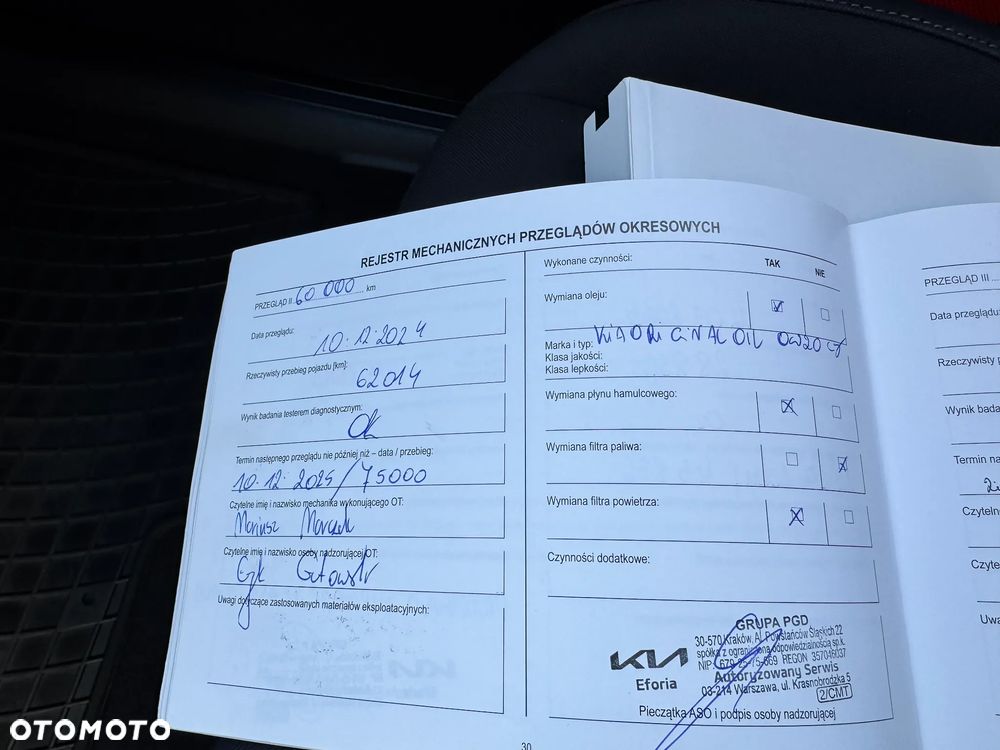 REJESTR MECHANICZNYCH PRZEGLĄDÓW OKRESOWYCH
PRZEGLĄD II 60 000 km
Data przeglądu: 10.12.2024
Rzeczywisty przebieg pojazdu [km]: 62014
Wynik badania testerem diagnostycznym: Ok
Termin następnego przeglądu nie później niż – data / przebieg:
10.12.2025 / 75000
Czytelne imię i nazwisko mechanika wykonującego OT:
Mariusz
Czytelne imię i nazwisko osoby nadzorującej OT:
Uwagi dotyczące zastosowanych materiałów eksploatacyjnych:
Wykonane czynności: TAK NIE
Wymiana oleju:
Marka i typ: KIA ORIGINAL OIL 0W20
Klasa jakości:
Klasa lepkości:
Wymiana płynu hamulcowego:
Wymiana filtra paliwa:
Wymiana filtra powietrza:
Czynności dodatkowe:
GRUPA PGD
30-570 Kraków, Al. Powstańców Śląskich 22
spółka z ograniczoną odpowiedzialnością sp.k.
NIP: 679-25-75-669 REGON 357046037
KIA
Eforia
Autoryzowany Serwis
03-214 Warszawa, ul. Krasnobrodzka 5
2/CMT
Pieczątka ASO i podpis osoby nadzorującej
30
PRZEGLĄD III
Data przeglądu:
Rzeczywisty
Wynik
Termin
Czytelne
OTOMOTO